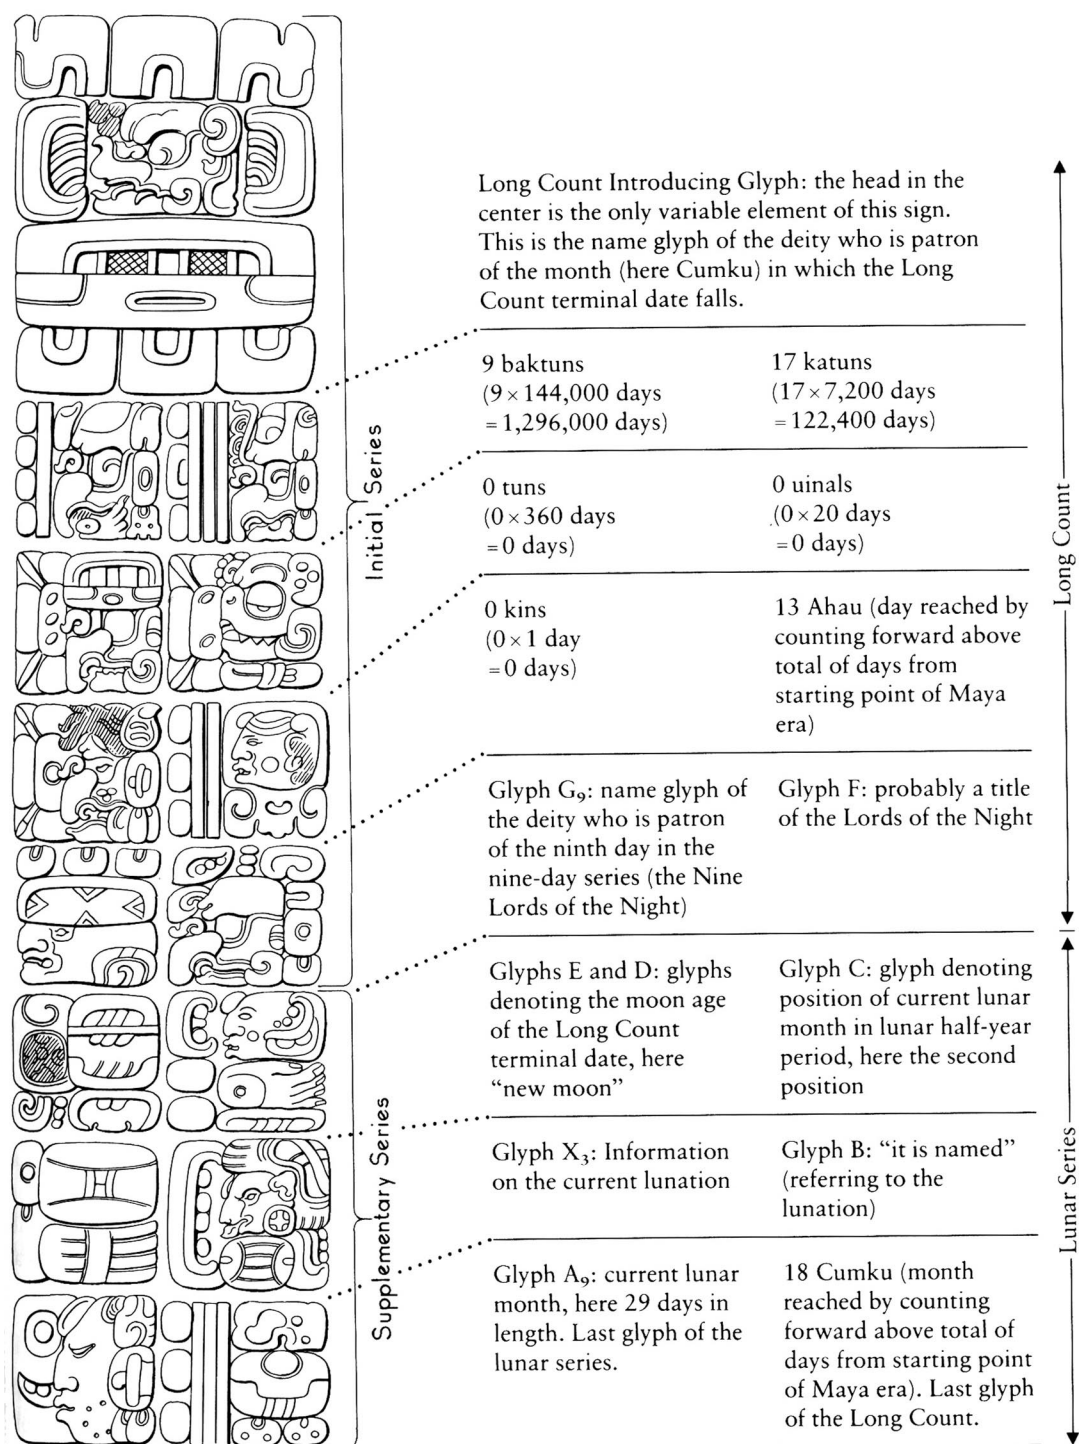 Long Count Introducing Glyph: the head in the
center is the only variable element of this sign.
This is the name glyph of the deity who is patron
of the month (here Cumku) in which the Long
Count terminal date falls.
9 baktuns
(9 × 144,000 days
= 1,296,000 days)
17 katuns
(17 × 7,200 days
= 122,400 days)
0 tuns
(0 × 360 days
= 0 days)
0 uinals
(0 × 20 days
= 0 days)
0 kins
(0 × 1 day
= 0 days)
13 Ahau (day reached by
counting forward above
total of days from
starting point of Maya
era)
Glyph G₉: name glyph of
the deity who is patron
of the ninth day in the
nine-day series (the Nine
Lords of the Night)
Glyph F: probably a title
of the Lords of the Night
Glyphs E and D: glyphs
denoting the moon age
of the Long Count
terminal date, here
“new moon”
Glyph C: glyph denoting
position of current lunar
month in lunar half-year
period, here the second
position
Glyph X₃: Information
on the current lunation
Glyph B: “it is named”
(referring to the
lunation)
Glyph A₉: current lunar
month, here 29 days in
length. Last glyph of the
lunar series.
18 Cumku (month
reached by counting
forward above total of
days from starting point
of Maya era). Last glyph
of the Long Count.
Initial Series
Supplementary Series
Long Count
Lunar Series